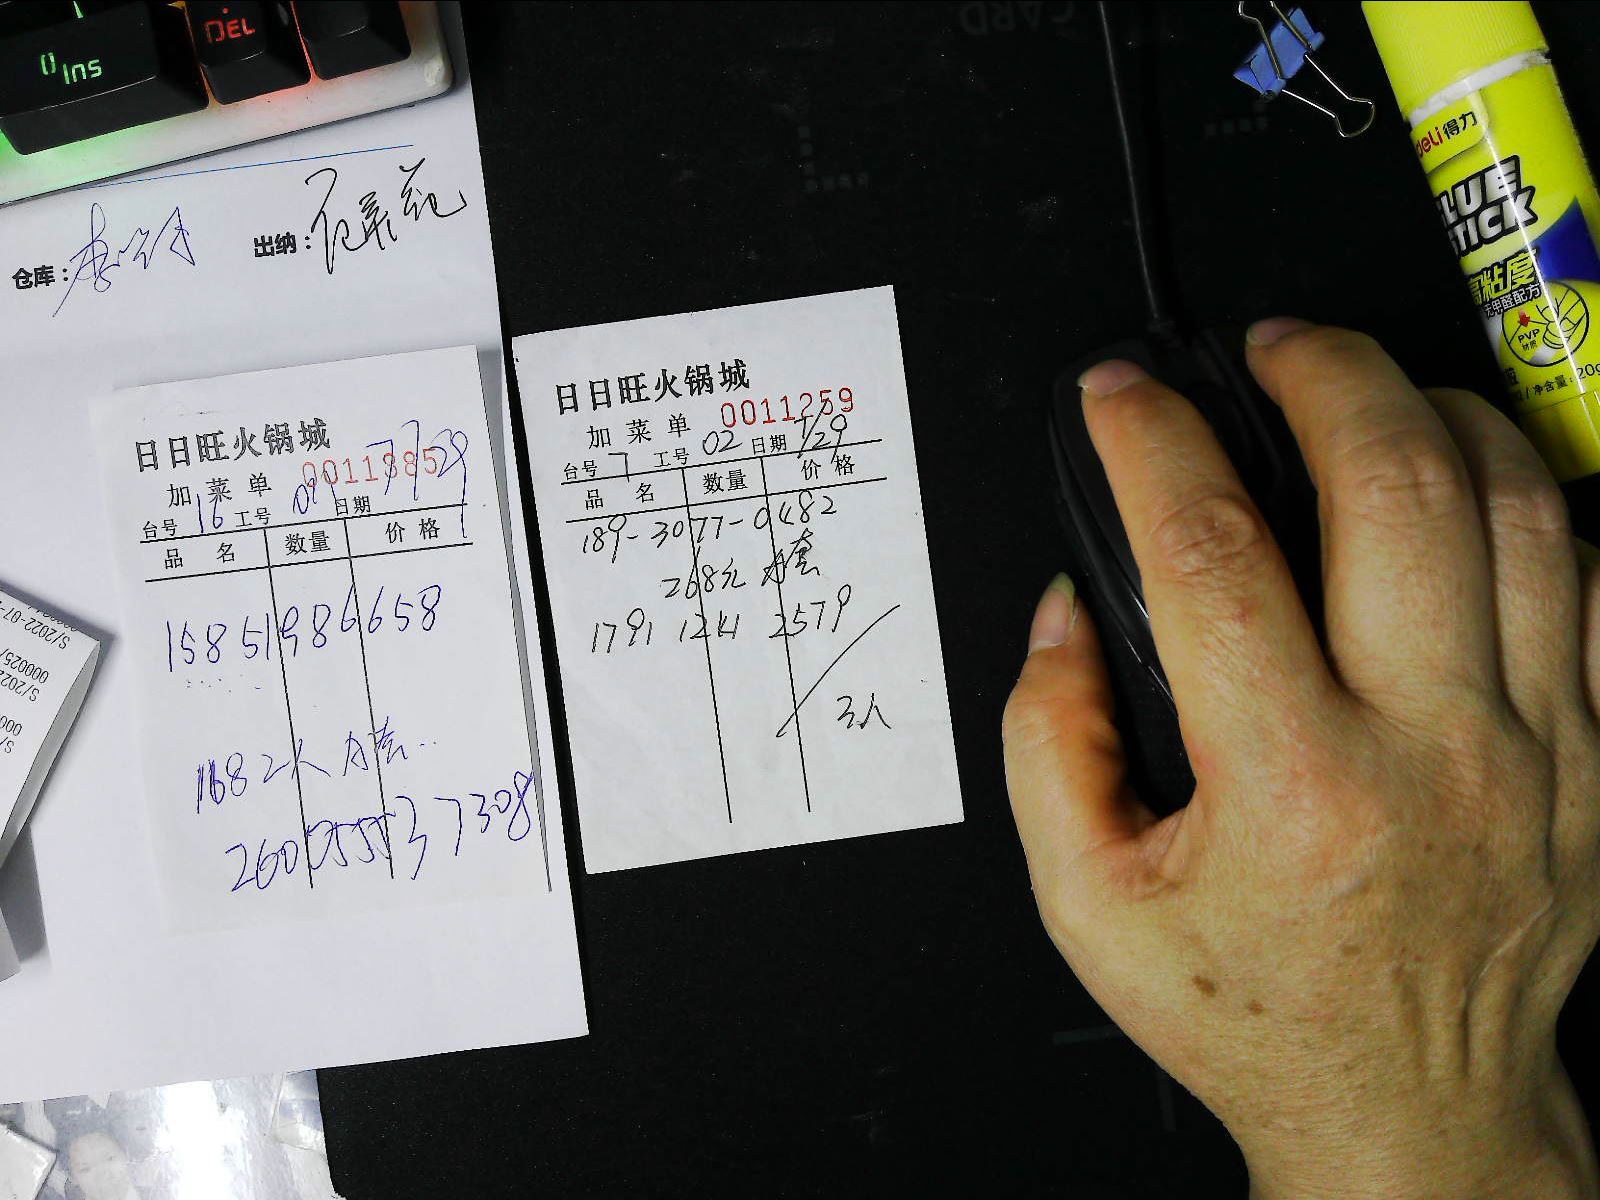 0 Ins
DEL
仓库:
出纳:
日日旺火锅城
0011885
加菜单
台号 16 工号 01 日期 7/29
品名 数量 价格
15851986658
168 2人
2600555537308
日日旺火锅城
0011259
加菜单
台号 7 工号 02 日期 7/29
品名 数量 价格
189-3077-0482
268元 套
1791 1241 2579
3人
deli 得力
GLUE
STICK
高粘度
无甲醛配方
PVP
材质
净含量:20g
S/2022-07-
000025/
S/2022